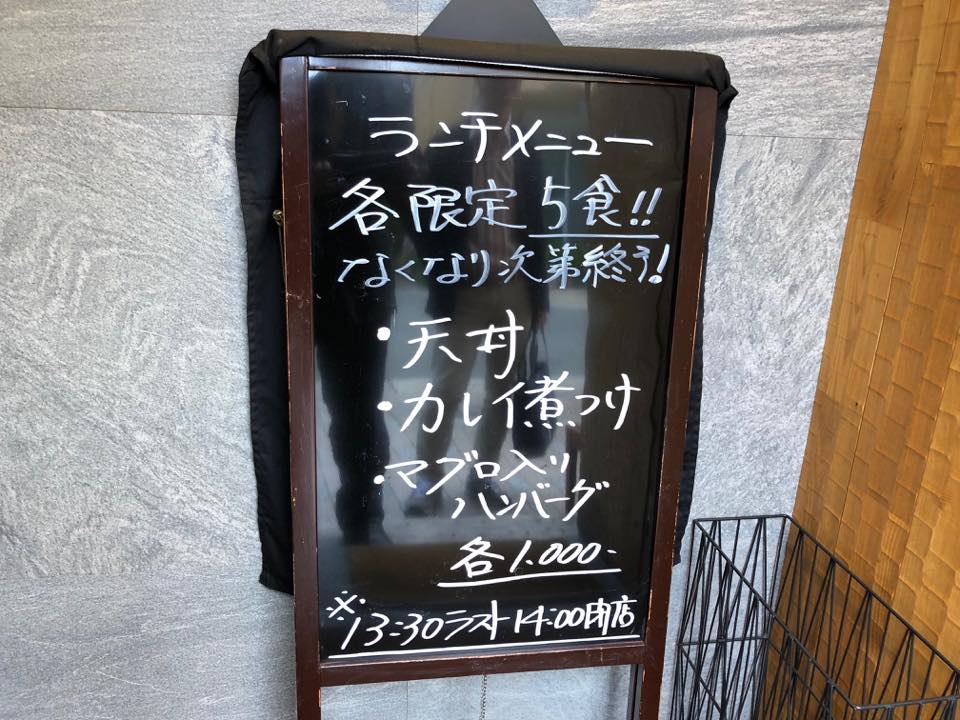 ランチメニュー
各限定5食!!
なくなり次第終う!
・天丼
・カレイ煮つけ
・マグロ入り
ハンバーグ
各1.000-
※13:30ラスト14:00閉店